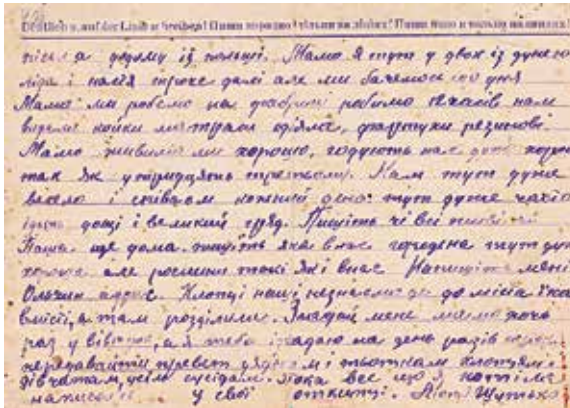 Deutlich u. auf der Linie schreiben! Пиши виразно і тільки на лініях! Пиши ясно и только на линиях!
після а додому із польщі. Мамо я тут у двох із дунею
ліда і настя трохе далі але ми бачемось що дня
Мамо ми робемо на фабриці робимо часів нам
видали койки матраси одіяла, фартуки резинові
Мамо живимо ми хорошо, годують нас дуже хорошо
так як у трицять третьому. Нам тут дуже
весело і співаєм кожний день. тут дуже часто
ідуть дощі і великий град. Пишіть чі всі живі
Паша ще дома. пишіть яка в нас городена тут дуже
хороша але рослини такі як і в нас Напишіть мені
Ольчин адрес. Хлопці наші незнаємо де до міста їхали
вмісті, а там розділили. Згадай мене мамо хоть
раз у вівторок, а я тебе згадаю на день разів
передавайте привет дядькам і тьоткам хлопцям і
дівчатам, усім сусідам. Пока все що я хотіла
написати у свої открытці.